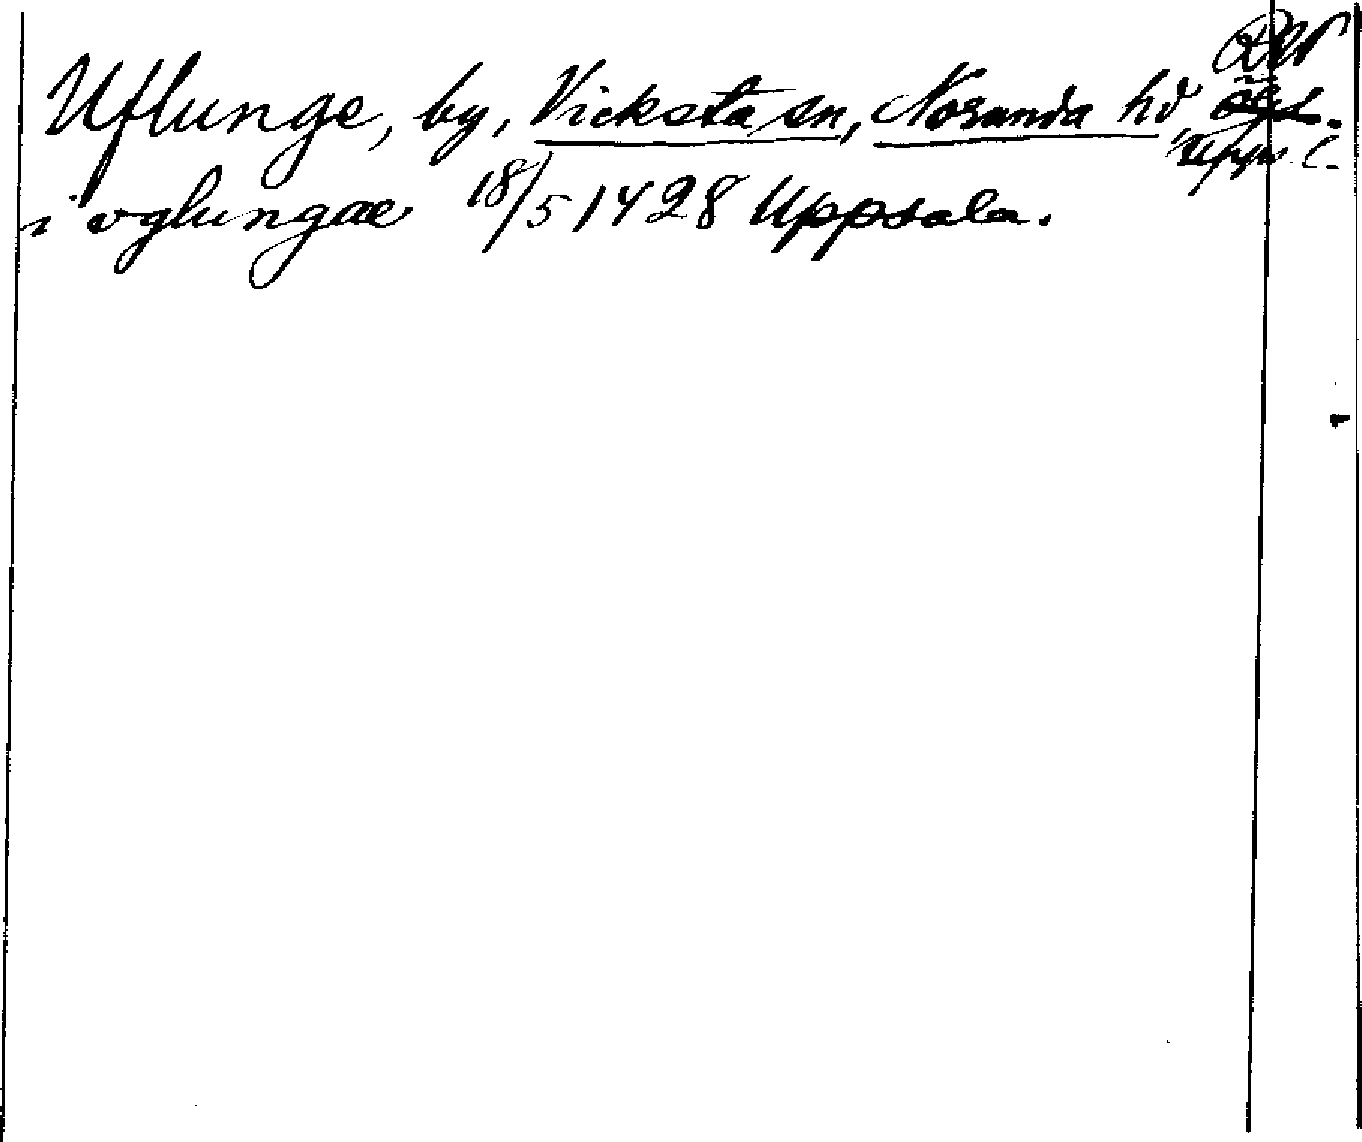 Uflunge, by, Vicksta sn, Norunda hd,
Upps. l.
i oglungae 18/5 1428 Uppsala.